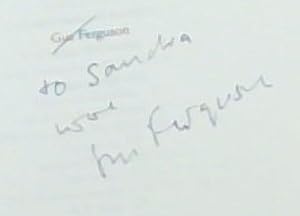 Gus Ferguson
to Sandra
love
Gus Ferguson